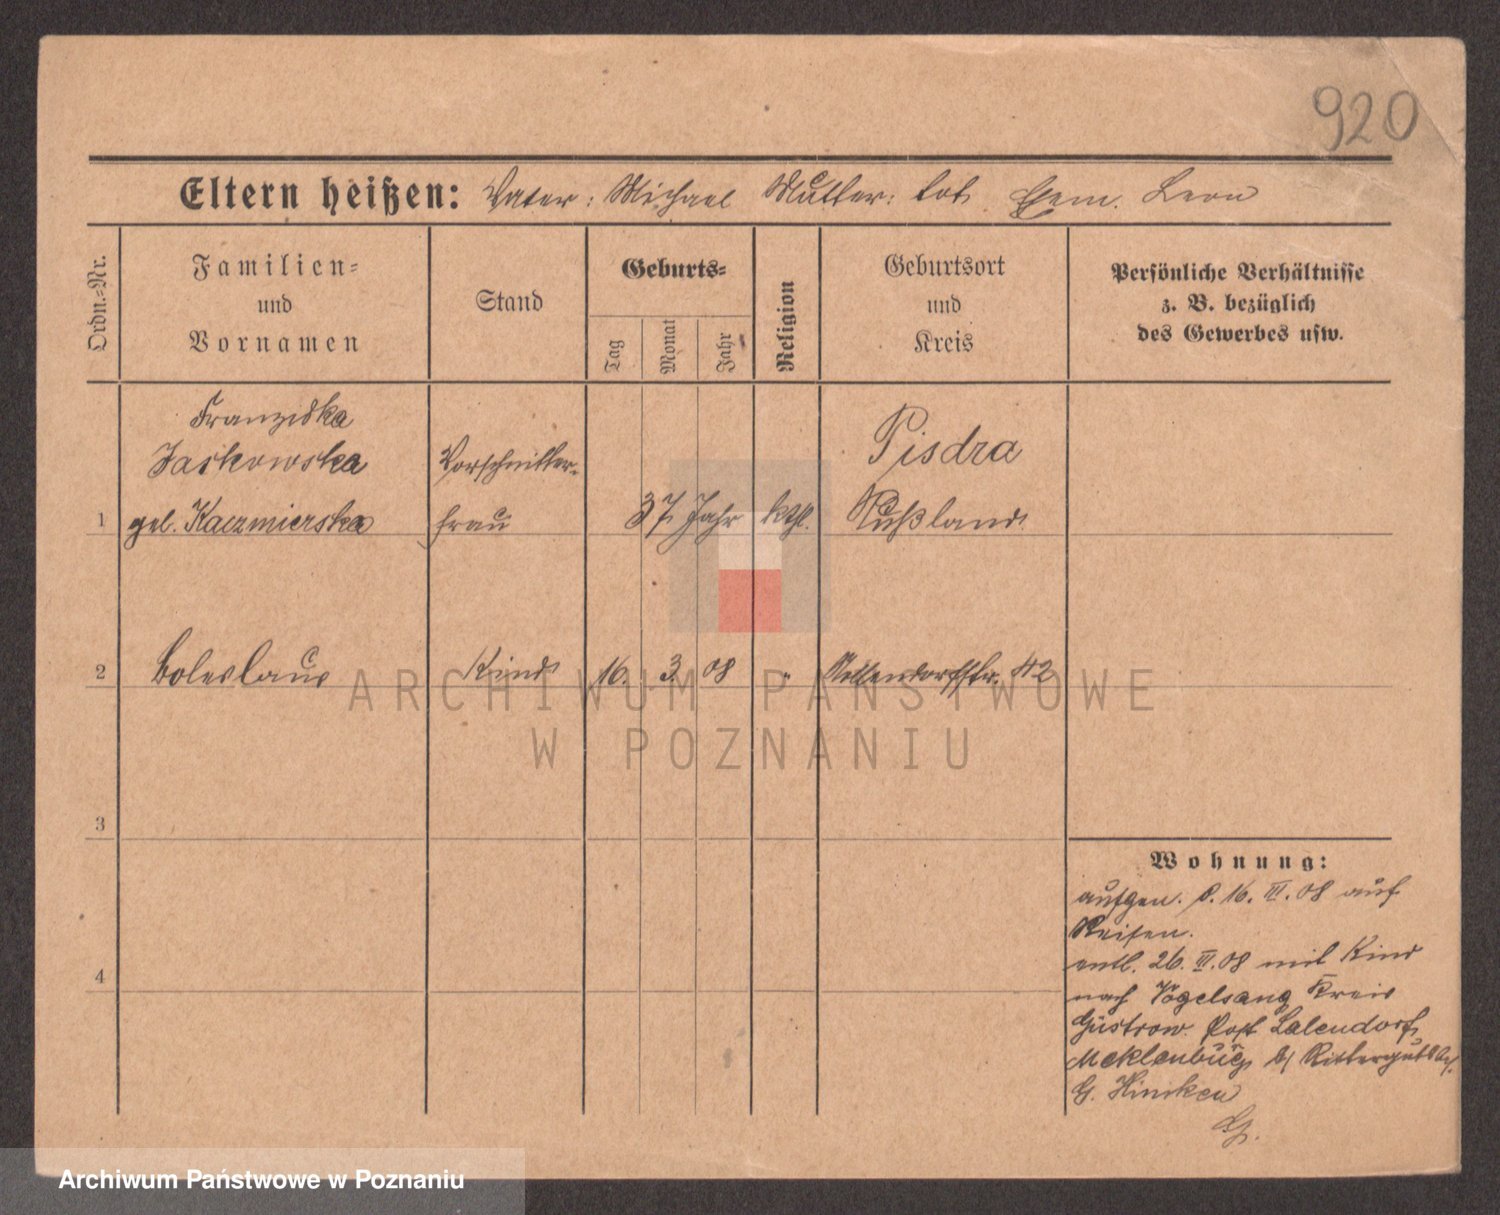 920
Eltern heißen: Vater: Michael Mutter: tot Ehem. Leon
Ordn.-Nr.
Familien-
und
Vornamen
Stand
Geburts-
Tag
Monat
Jahr
Religion
Geburtsort
und
Kreis
Persönliche Verhältnisse
z. B. bezüglich
des Gewerbes usw.
Franziska
Jaskowska
1 geb. Kaczmierska
Vorschnitter-
frau
37 Jahr
kth.
Pisdra
Rußland
2 Boleslaus Kind 16. 3. 08 " Nollendorfstr. 42
ARCHIWUM PAŃSTWOWE
W POZNANIU
3
4
Wohnung:
aufgen. d. 16. III. 08 auf
Reisen.
entl. 26. III. 08 mit Kind
nach Vogelsang Kreis
Güstrow. Post Lalendorf
Meklenburg b/ Rittergutsbes.
G. Hiniken
G.
Archiwum Państwowe w Poznaniu